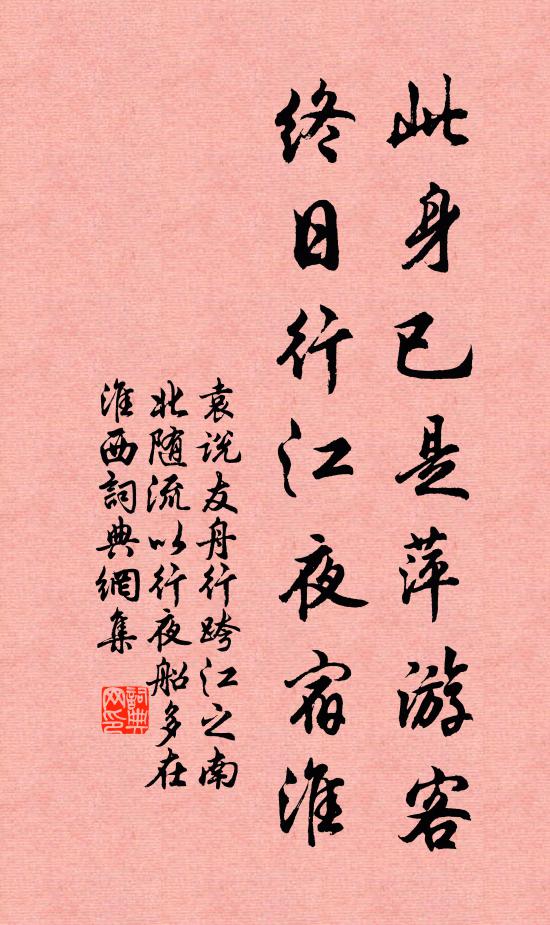 此身已是萍游客
终日行江夜宿淮
袁说友舟行跨江之南
北随流以行夜船多在
淮西詞典網集
詞典网印